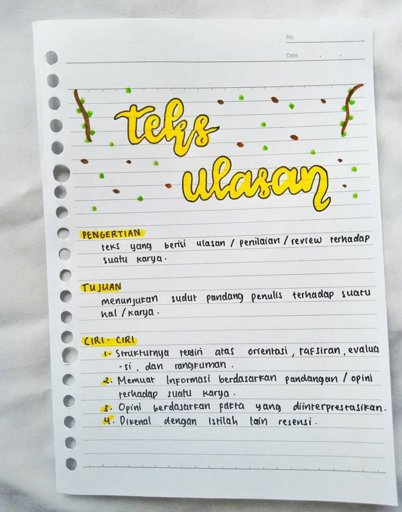 No.
Date
teks
ulasan
PENGERTIAN
teks yang berisi ulasan / penilaian / review terhadap
suatu karya.
TUJUAN
menunjukan sudut pandang penulis terhadap suatu
hal / karya.
CIRI - CIRI
1. Strukturnya terdiri atas orientasi, tafsiran, evalua
-si, dan rangkuman.
2. Memuat Informasi berdasarkan pandangan / opini
terhadap suatu karya.
3. Opini berdasarkan fakta yang diinterprestasikan.
4. Dikenal dengan istilah lain resensi.